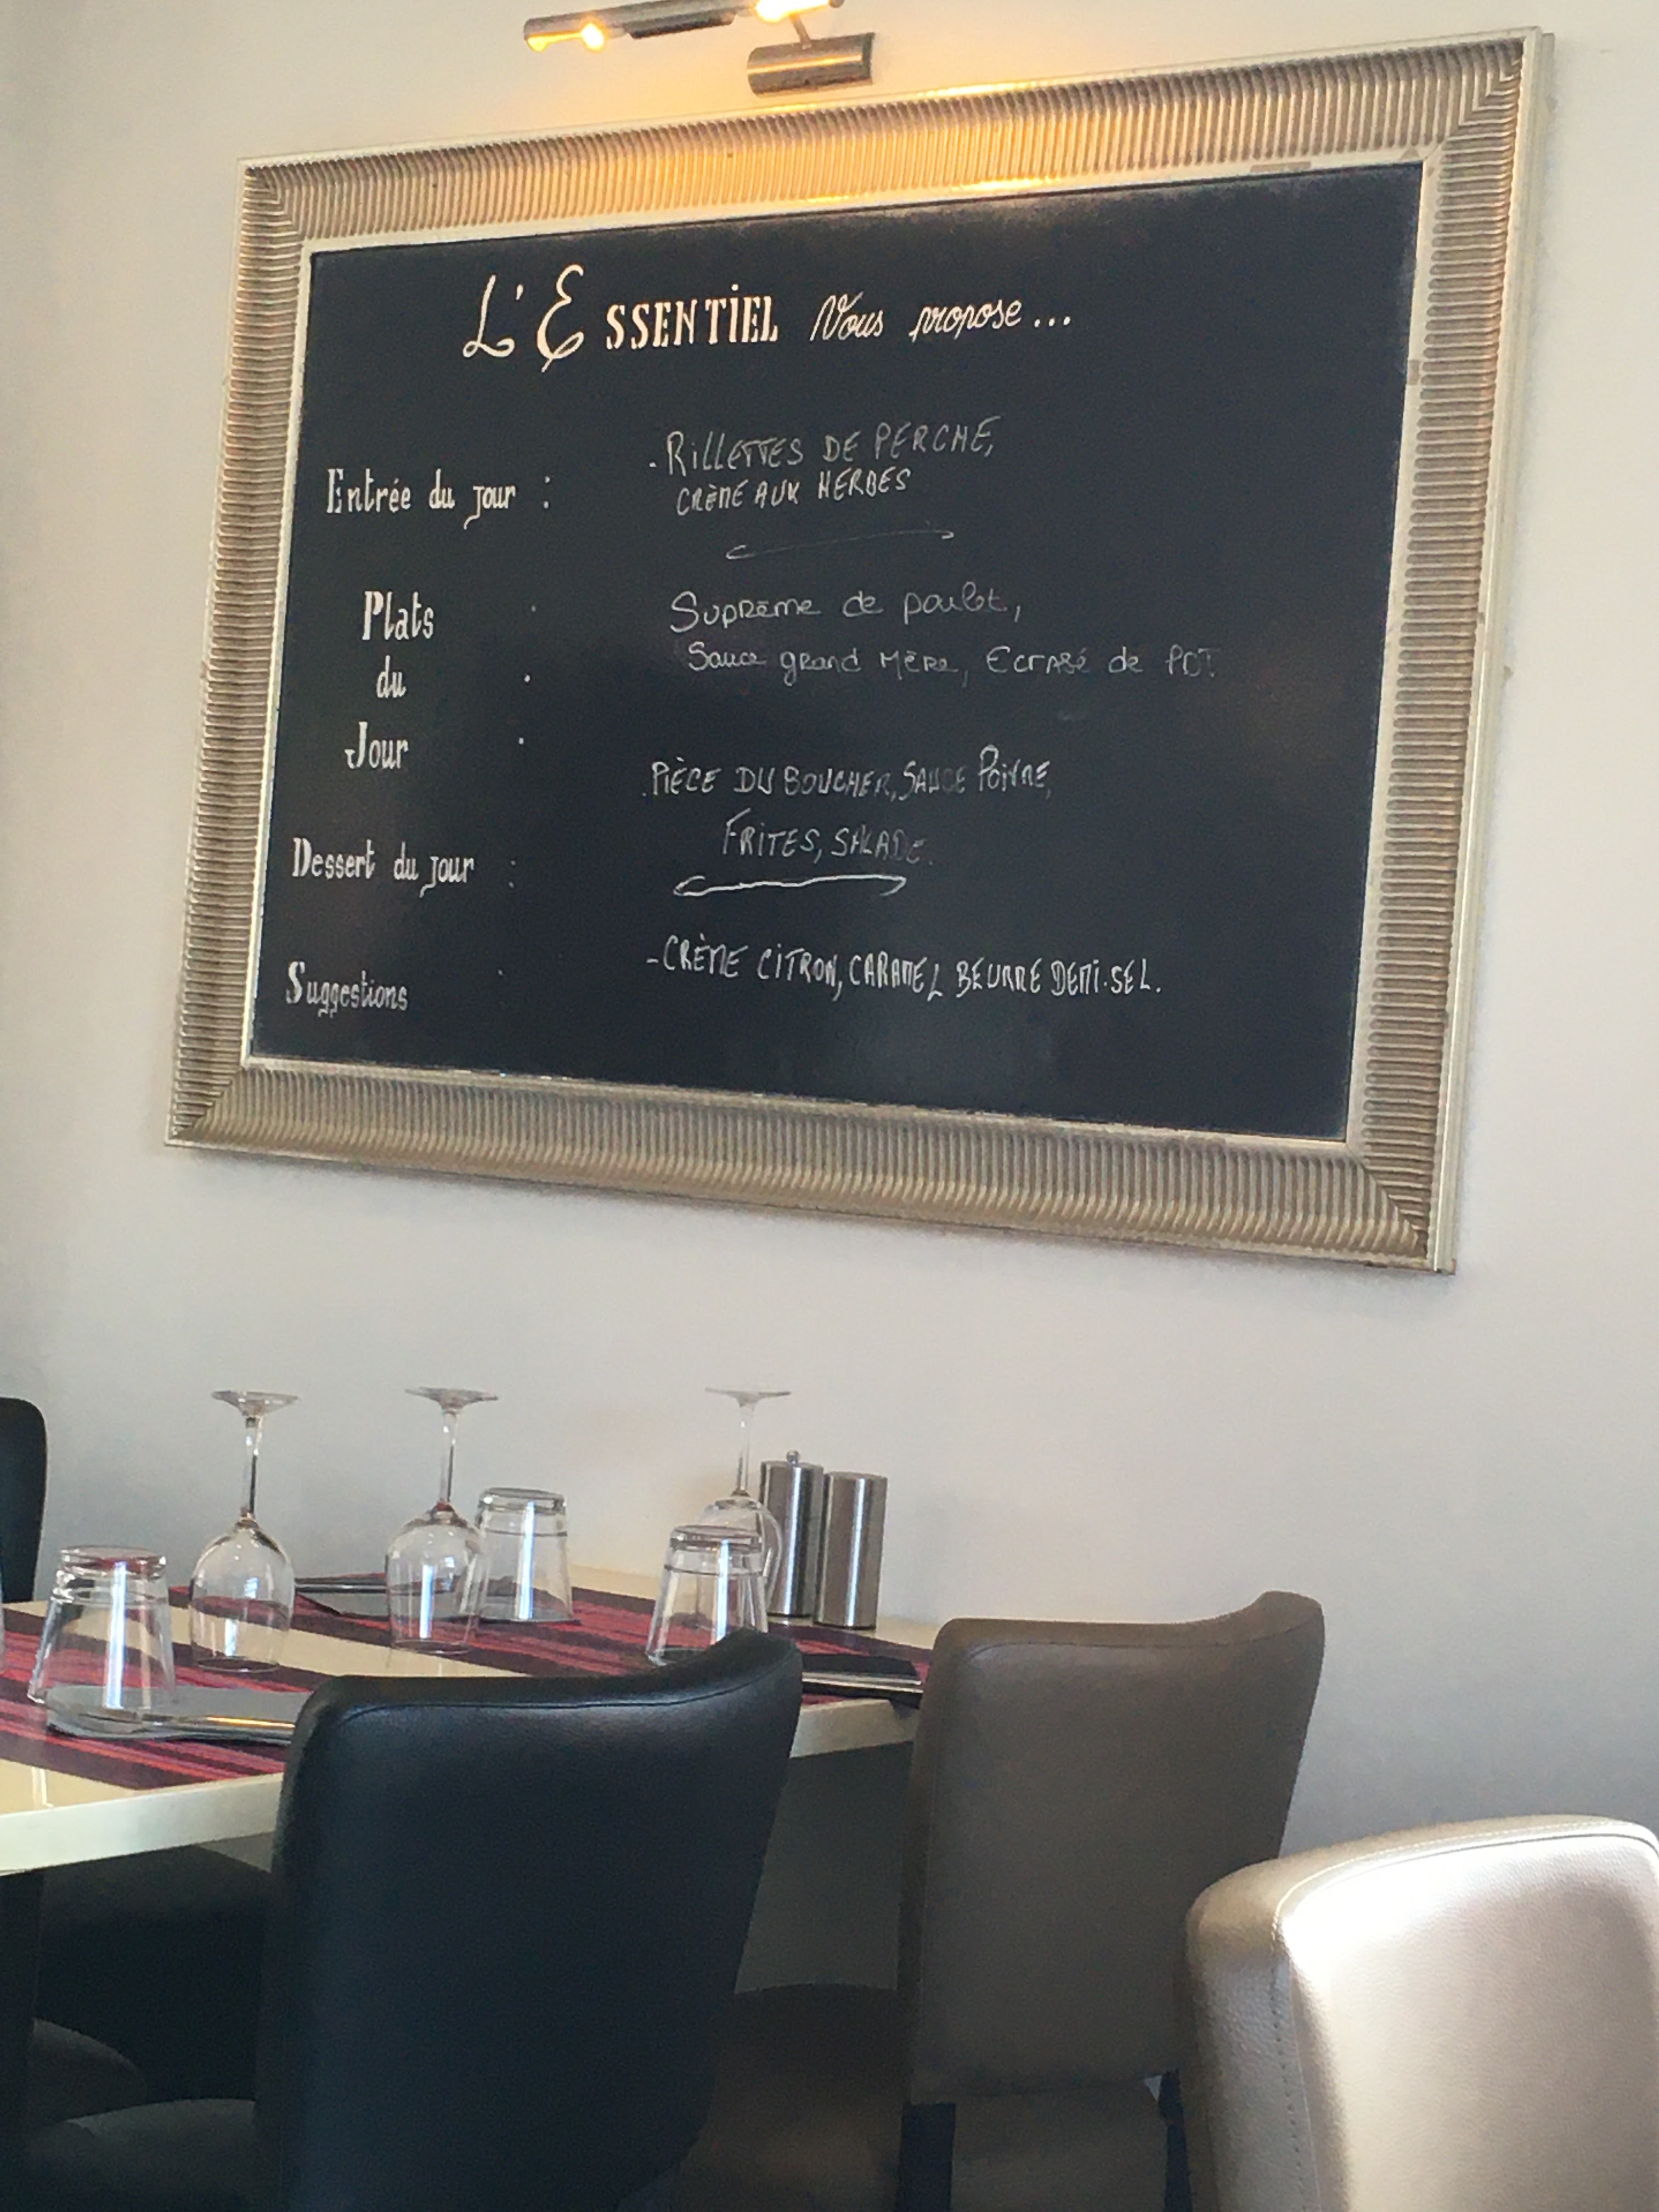 L'ESSENTiEL Vous propose...
Entrée du jour :
. RiLLETTES DE PERCHE,
CRÈME AUX HERBES
Plats
du
Jour
Suprême de poulet,
Sauce grand Mère, Ecrasé de PDT
. PIÈCE DU BOUCHER, SAUCE POIVRE,
FRITES, SALADE.
Dessert du jour :
- CRÈME CiTRON, CARAMEL BEURRE DEMi-SEL.
Suggestions